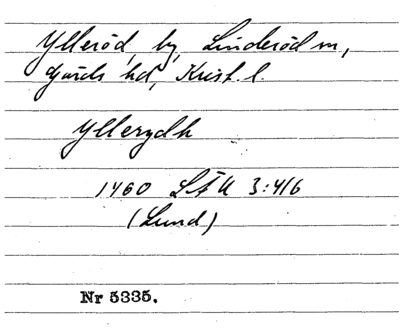 Ylleröd, by, Linderöd sn,
Gärds hd, Krist. l.
Yllerydh
1460 LÄU 3:416
(Lund)
Nr 5335.